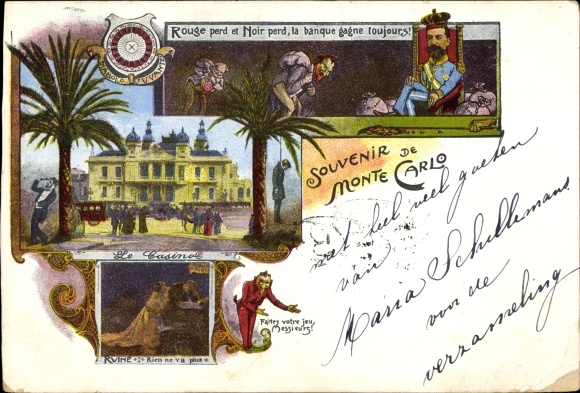 Rouge perd et Noir perd, la banque gagne toujours!
SOUVENIR DE
MONTE CARLO
Le Casino
Faites votre jeu,
Messieurs!
RUINE Rien ne va plus
met heel veel groeten
van
Maria Schellemans
voor de
verzameling